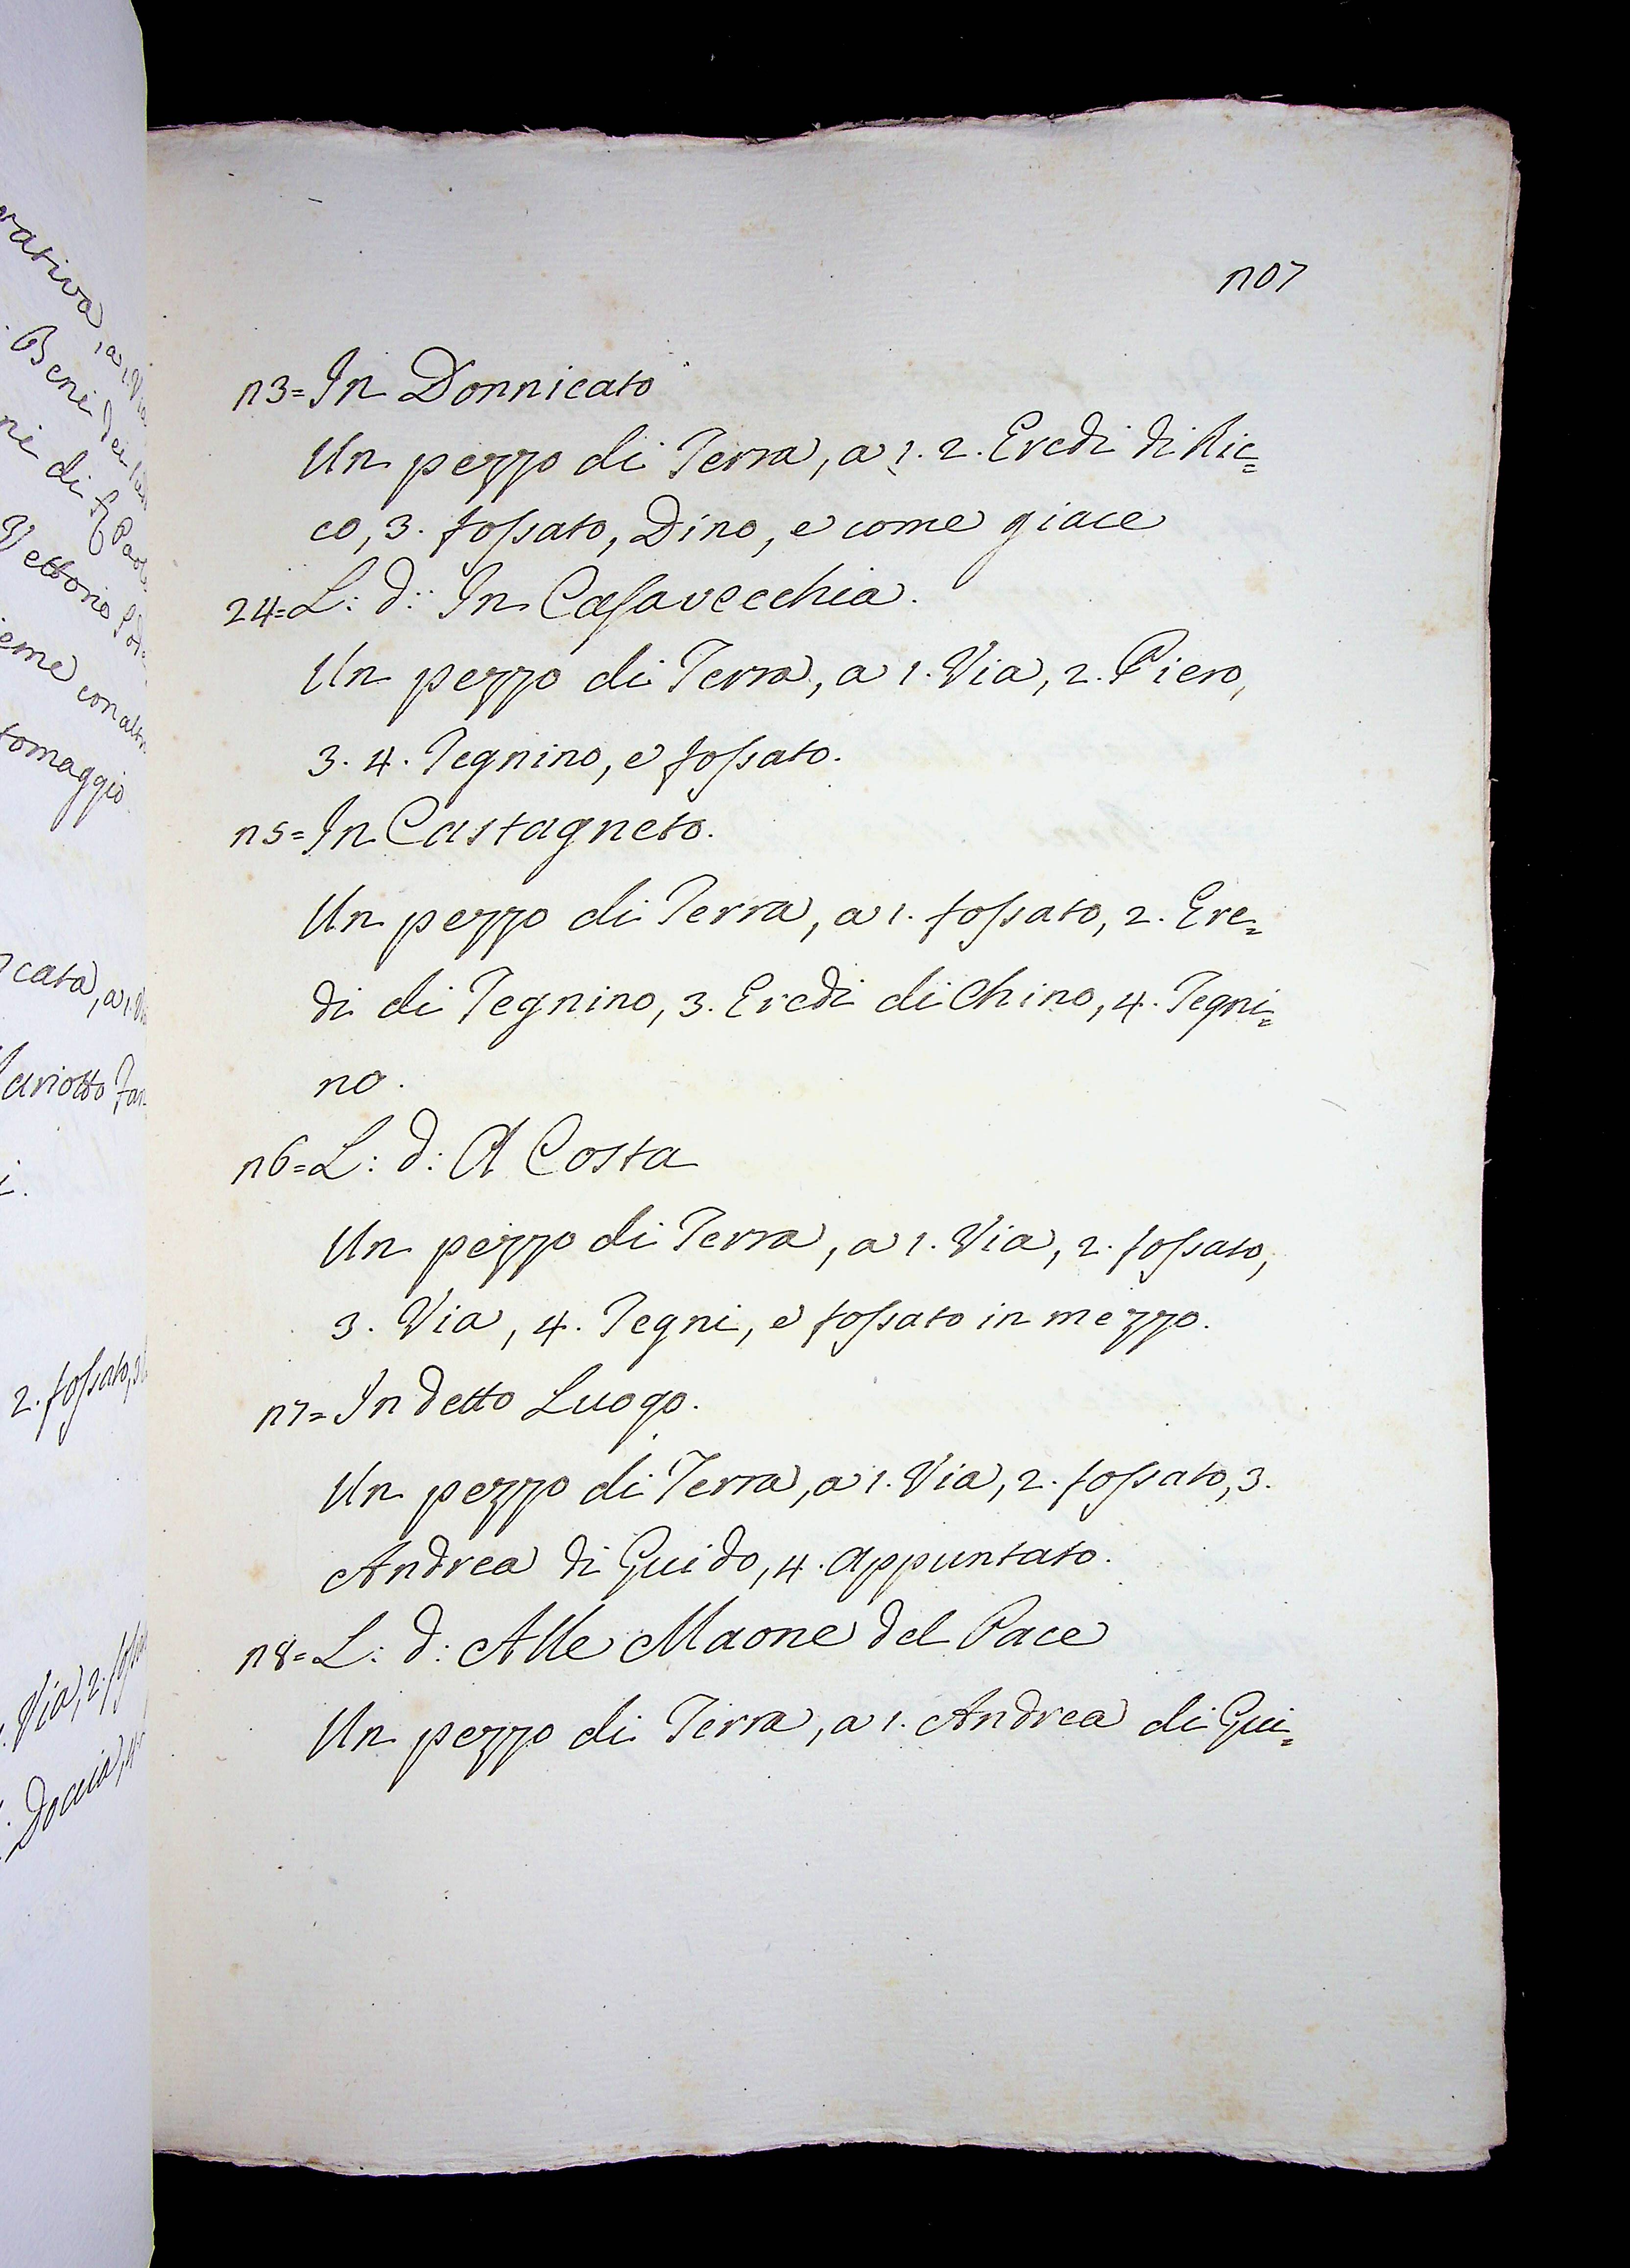 Beni dei
di
Vettorio
con altri
2. fossato,
Via, 2.
Doccia,
207
23= In Donnicato
Un pezzo di Terra, a 1. 2. Eredi di Ric=
co, 3. fossato, Dino, e come giace
24= L: d: In Casavecchia.
Un pezzo di Terra, a 1. Via, 2. Piero,
3. 4. Tegnino, e fossato.
25= In Castagneto.
Un pezzo di Terra, a 1. fossato, 2. Ere=
di di Tegnino, 3. Eredi di Chino, 4. Tegni=
no.
26= L: d: A Costa
Un pezzo di Terra, a 1. Via, 2. fossato,
3. Via, 4. Tegni, e fossato in mezzo.
27= In detto Luogo.
Un pezzo di Terra, a 1. Via, 2. fossato, 3.
Andrea di Guido, 4. appuntato.
28= L: d: Alle Maone del Pace
Un pezzo di Terra, a 1. Andrea di Gui=